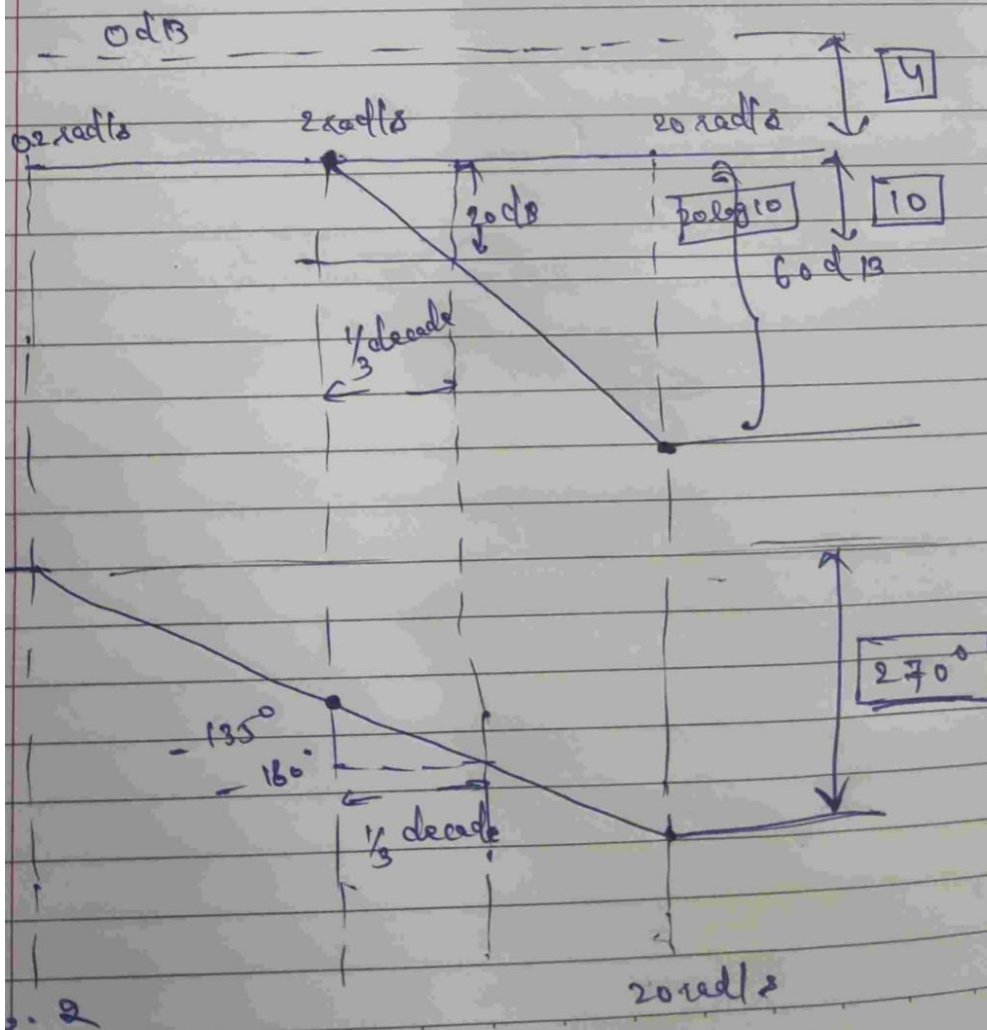 0 dB
4
0.2 rad/s 2 rad/s 20 rad/s
20 dB 20log10 10
60 dB
1/3 decade
270°
- 135°
- 180°
1/3 decade
20 rad/s